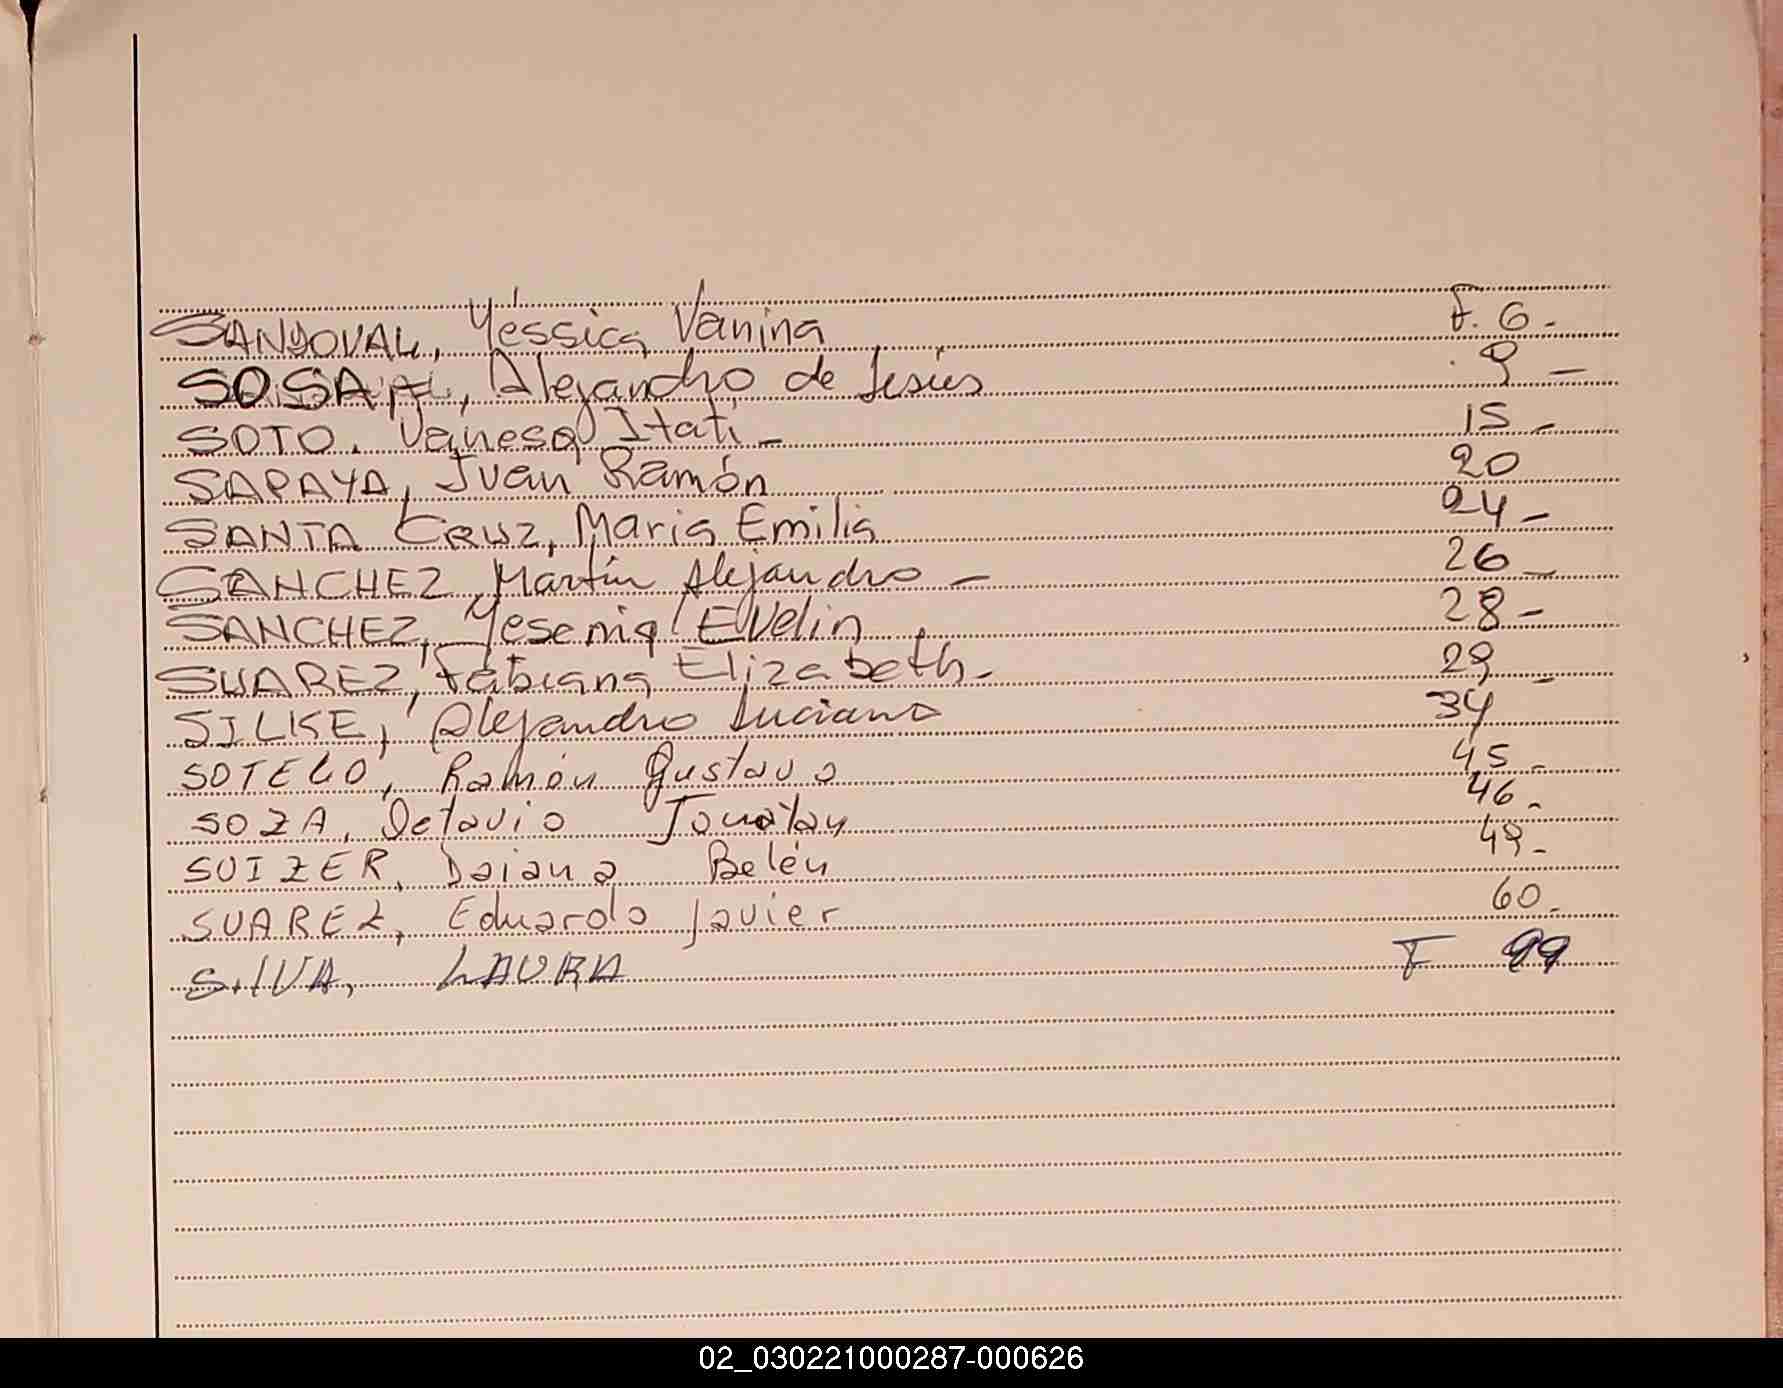 SANDOVAL, Yéssica Vanina F. 6-
SOSA, Alejandro de Jesús 9-
SOTO. Vanesa Itatí- 15-
SAPAYA, Juan Ramón 20
SANTA CRUZ, Maria Emilia 24-
SANCHEZ, Martín Alejandro- 26-
SANCHEZ, Yesenia Evelin 28-
SUAREZ, Fabiana Elizabeth- 29-
SILKE, Alejandro Luciano 34
SOTELO, Ramón Gustavo 45-
SOZA, Octavio Jonatan 46-
SUIZER, Daiana Belén 49-
SUAREZ, Eduardo Javier 60-
SILVA, LAURA F 99
02_030221000287-000626